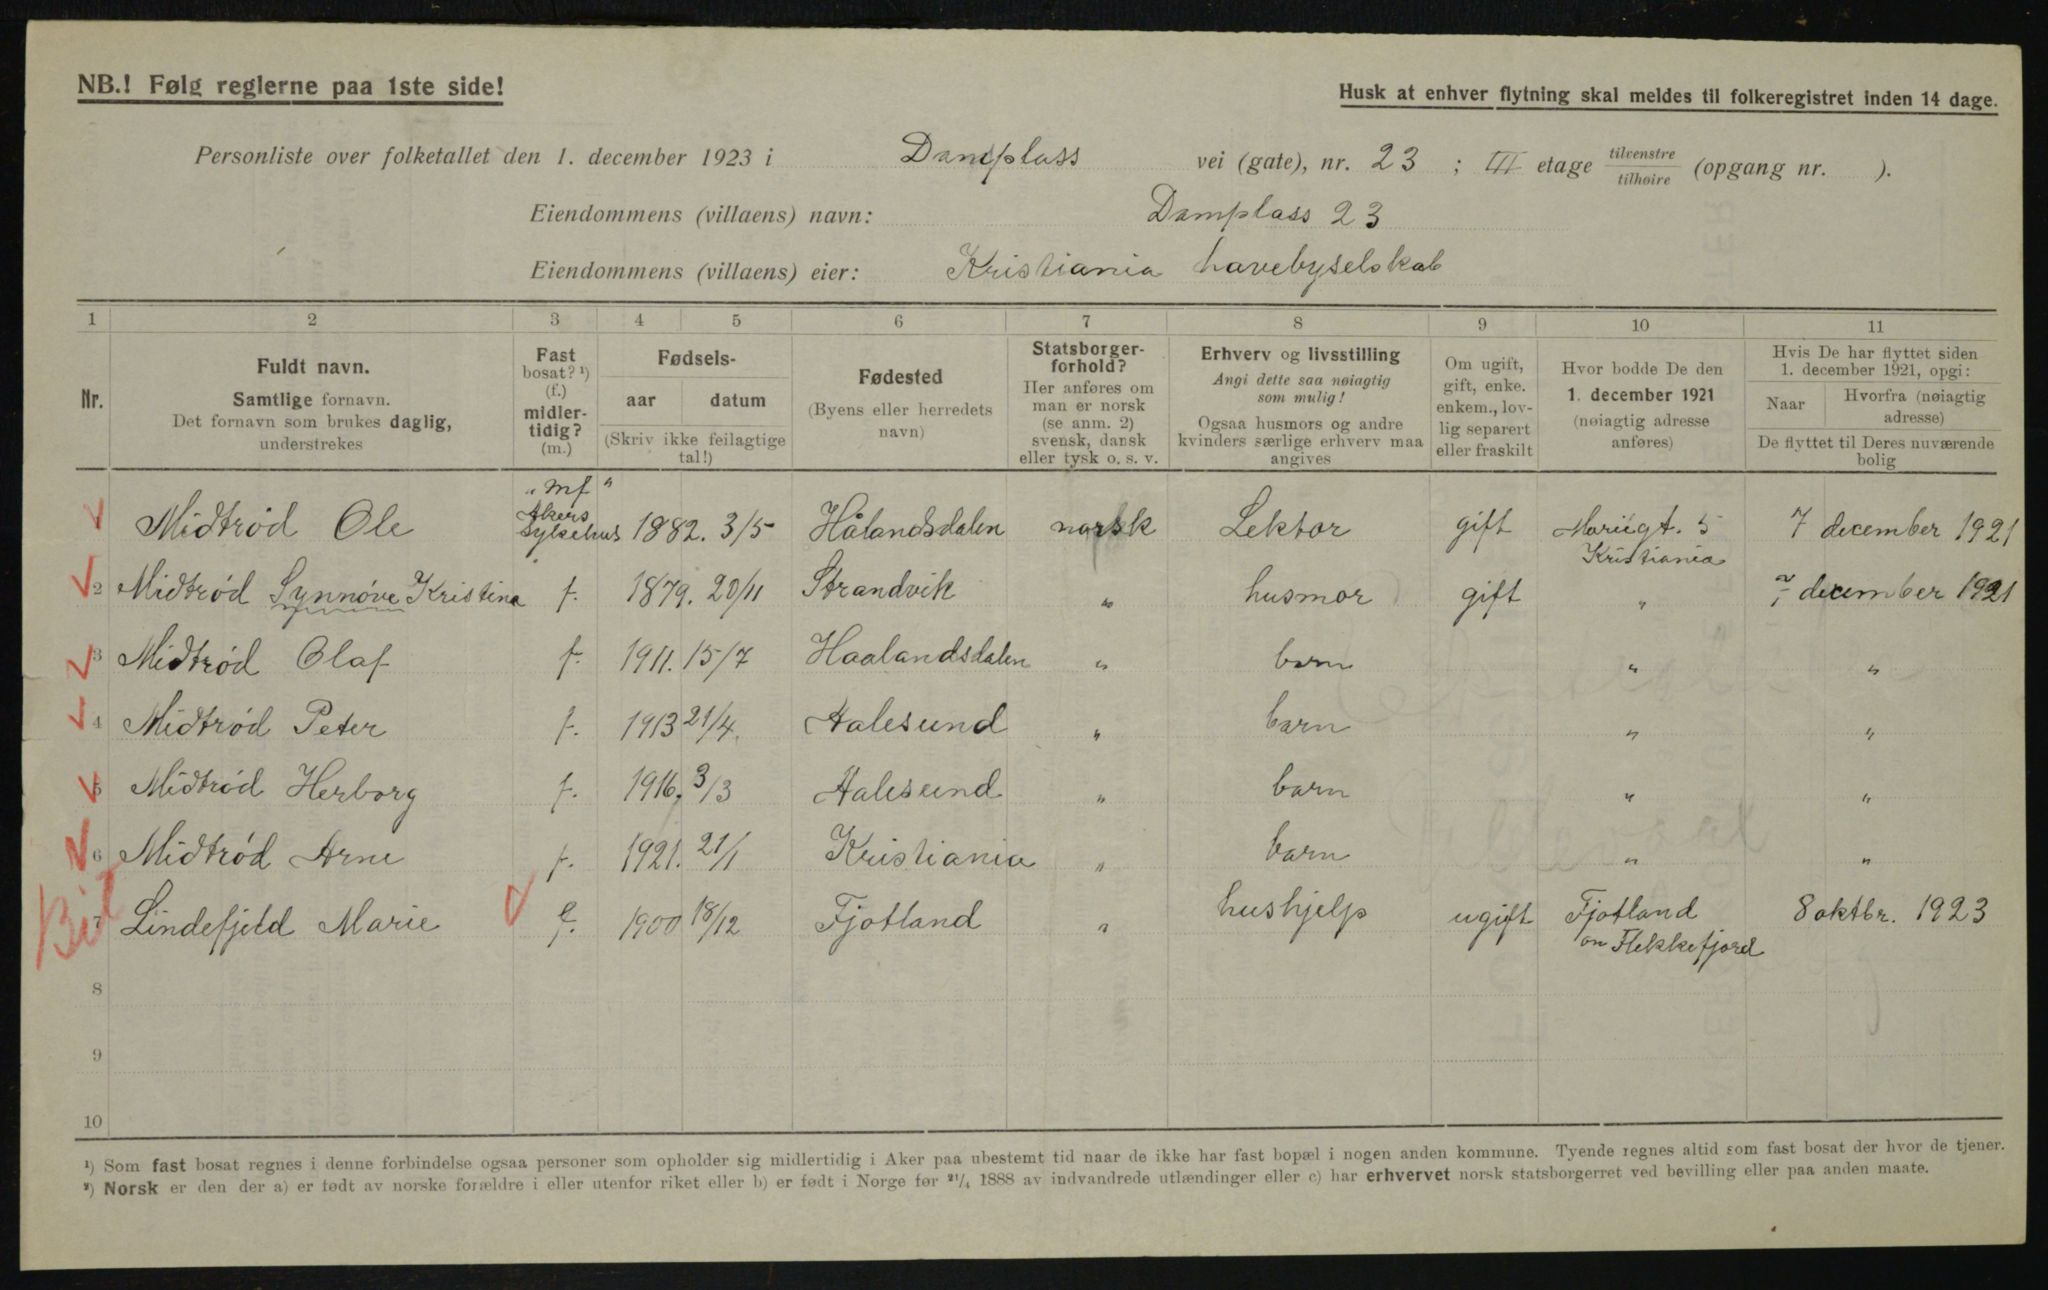 NB.! Følg reglerne paa 1ste side!
Husk at enhver flytning skal meldes til folkeregistret inden 14 dage.
Personliste over folketallet den 1. december 1923 i Damplass vei (gate), nr. 23 ; III etage tilvenstre/tilhøire (opgang nr. ).
Eiendommens (villaens) navn: Damplass 23
Eiendommens (villaens) eier: Kristiania havebyselskab
1 2 3 4 5 6 7 8 9 10 11
Nr.
Fuldt navn.
Samtlige fornavn.
Det fornavn som brukes daglig,
understrekes
Fast
bosat? ¹)
(f.)
midler-
tidig?
(m.)
Fødsels-
aar datum
(Skriv ikke feilagtige
tal!)
Fødested
(Byens eller herredets
navn)
Statsborger-
forhold?
Her anføres om
man er norsk
(se anm. 2)
svensk, dansk
eller tysk o. s. v.
Erhverv og livsstilling
Angi dette saa nøiagtig
som mulig!
Ogsaa husmors og andre
kvinders særlige erhverv maa
angives
Om ugift,
gift, enke.
enkem., lov-
lig separert
eller fraskilt
Hvor bodde De den
1. december 1921
(nøiagtig adresse
anføres)
Hvis De har flyttet siden
1. december 1921, opgi:
Naar Hvorfra (nøiagtig
adresse)
De flyttet til Deres nuværende
bolig
Midtrød Ole "mf" Akers Sykehus 1882. 3/5 Hålandsdalen norsk Lektor gift Mariigt. 5 Kristiania 7 december 1921
2 Midtrød Synnøve Kristina f. 1879. 20/11 Strandvik " husmor gift " 7 december 1921
3 Midtrød Olaf f. 1911. 15/7 Haalandsdalen " barn " "
4 Midtrød Peter f. 1913 21/4. Aalesund " barn " "
5 Midtrød Herborg f. 1916. 3/3 Aalesund " barn " "
6 Midtrød Arne f. 1921. 21/1 Kristiania " barn " "
Bil
7 Lindefjeld Marie f. 1900 18/12 Fjotland " hushjelp ugift Fjotland on Flekkefjord 8 oktbr. 1923
8
9
10
¹) Som fast bosat regnes i denne forbindelse ogsaa personer som opholder sig midlertidig i Aker paa ubestemt tid naar de ikke har fast bopæl i nogen anden kommune. Tyende regnes altid som fast bosat der hvor de tjener.
²) Norsk er den der a) er født av norske forældre i eller utenfor riket eller b) er født i Norge før 21/4 1888 av indvandrede utlændinger eller c) har erhvervet norsk statsborgerret ved bevilling eller paa anden maate.